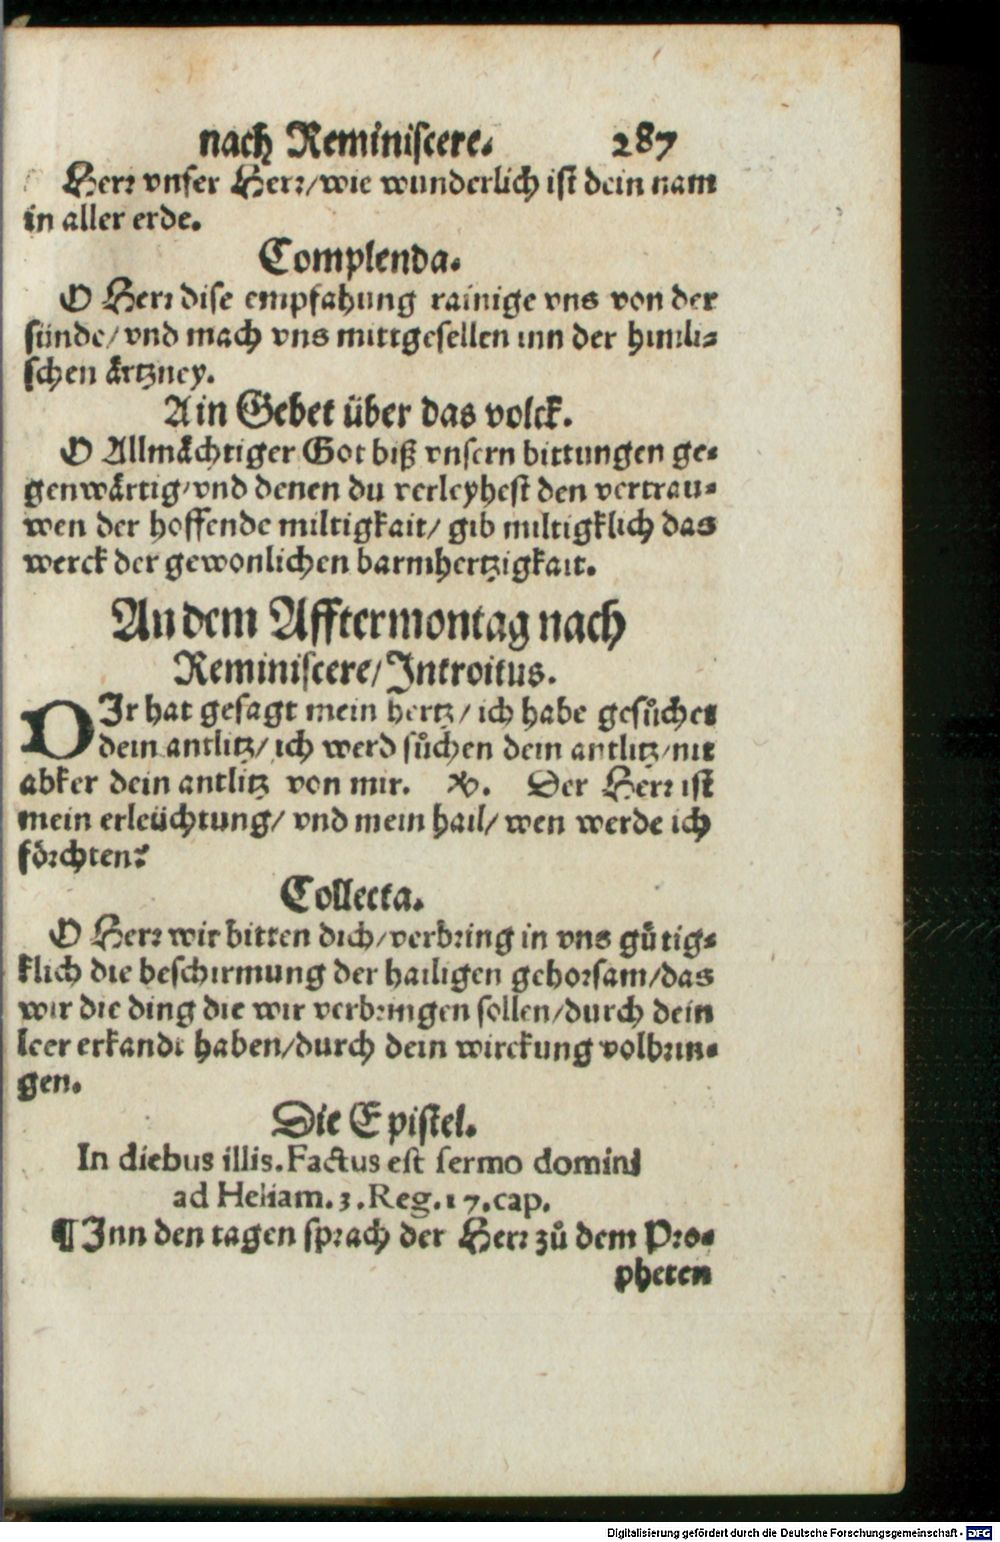 nach Reminiscere. 287
Herr vnser Herr/wie wunderlich ist dein nam
in aller erde.
Complenda.
O Herr dise empfahung rainige vns von der
sünde/vnd mach vns mittgesellen inn der himli-
schen ärtzney.
Ain Gebet über das volck.
O Allmächtiger Got biß vnsern bittungen ge-
genwärtig/vnd denen du verleyhest den vertrau-
wen der hoffende miltigkait/ gib miltigklich das
werck der gewonlichen barmhertzigkait.
An dem Afftermontag nach
Reminiscere/Introitus.
DIr hat gesagt mein hertz/ich habe gesůchet
dein antlitz/ich werd sůchen dein antlitz/nit
abker dein antlitz von mir. V. Der Herr ist
mein erleüchtung/ vnd mein hail/ wen werde ich
förchten?
Collecta.
O Herr wir bitten dich/verbring in vns gůtig-
klich die beschirmung der hailigen gehorsam/das
wir die ding die wir verbringen sollen/durch dein
leer erkandt haben/durch dein wirckung volbrin-
gen.
Die Epistel.
In diebus illis. Factus est sermo domini
ad Heliam. 3. Reg. 17. cap.
¶ Inn den tagen sprach der Herr zů dem Pro-
pheten
Digitalisierung gefördert durch die Deutsche Forschungsgemeinschaft - DFG